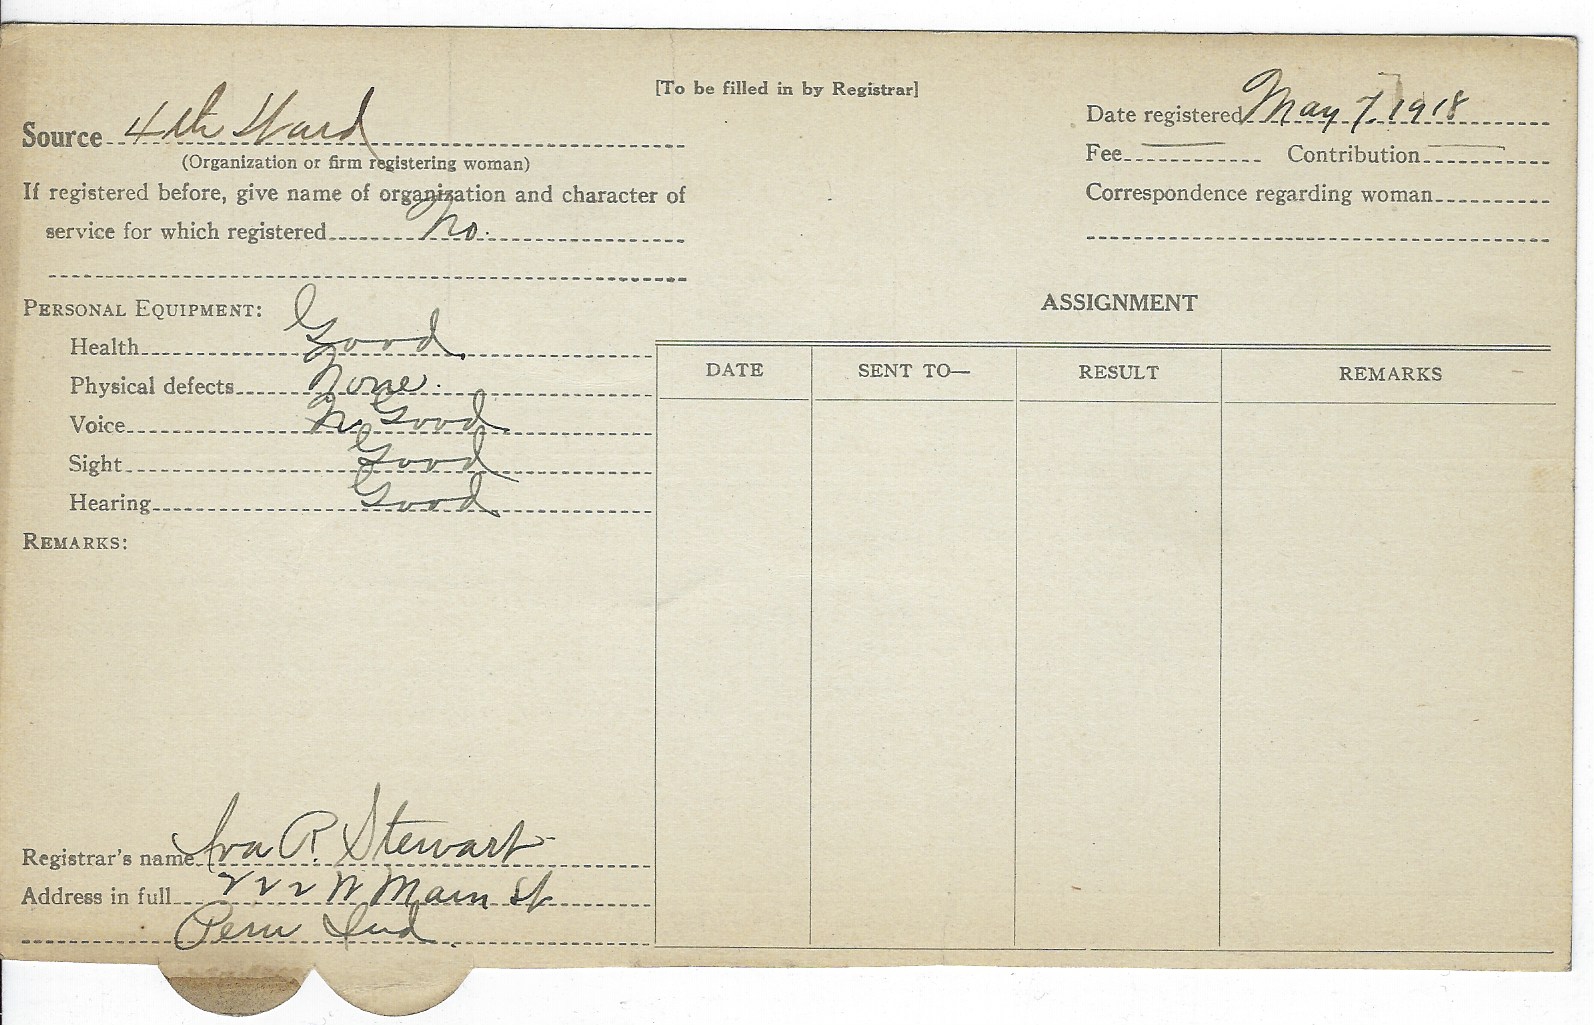 [To be filled in by Registrar]
Source 4th Ward
(Organization or firm registering woman)
If registered before, give name of organization and character of
service for which registered No.
Date registered May 7, 1918
Fee — Contribution —
Correspondence regarding woman
PERSONAL EQUIPMENT:
Health Good.
Physical defects None.
Voice Good
Sight Good
Hearing Good
REMARKS:
Registrar's name Iva R. Stewart
Address in full 222 W Main St
Peru Ind.
ASSIGNMENT
DATE SENT TO— RESULT REMARKS